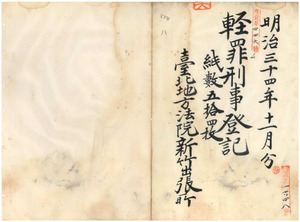 明治三十四年十一月分
輕罪刑事登記
紙數五拾四枚
臺北地方法院新竹出張所